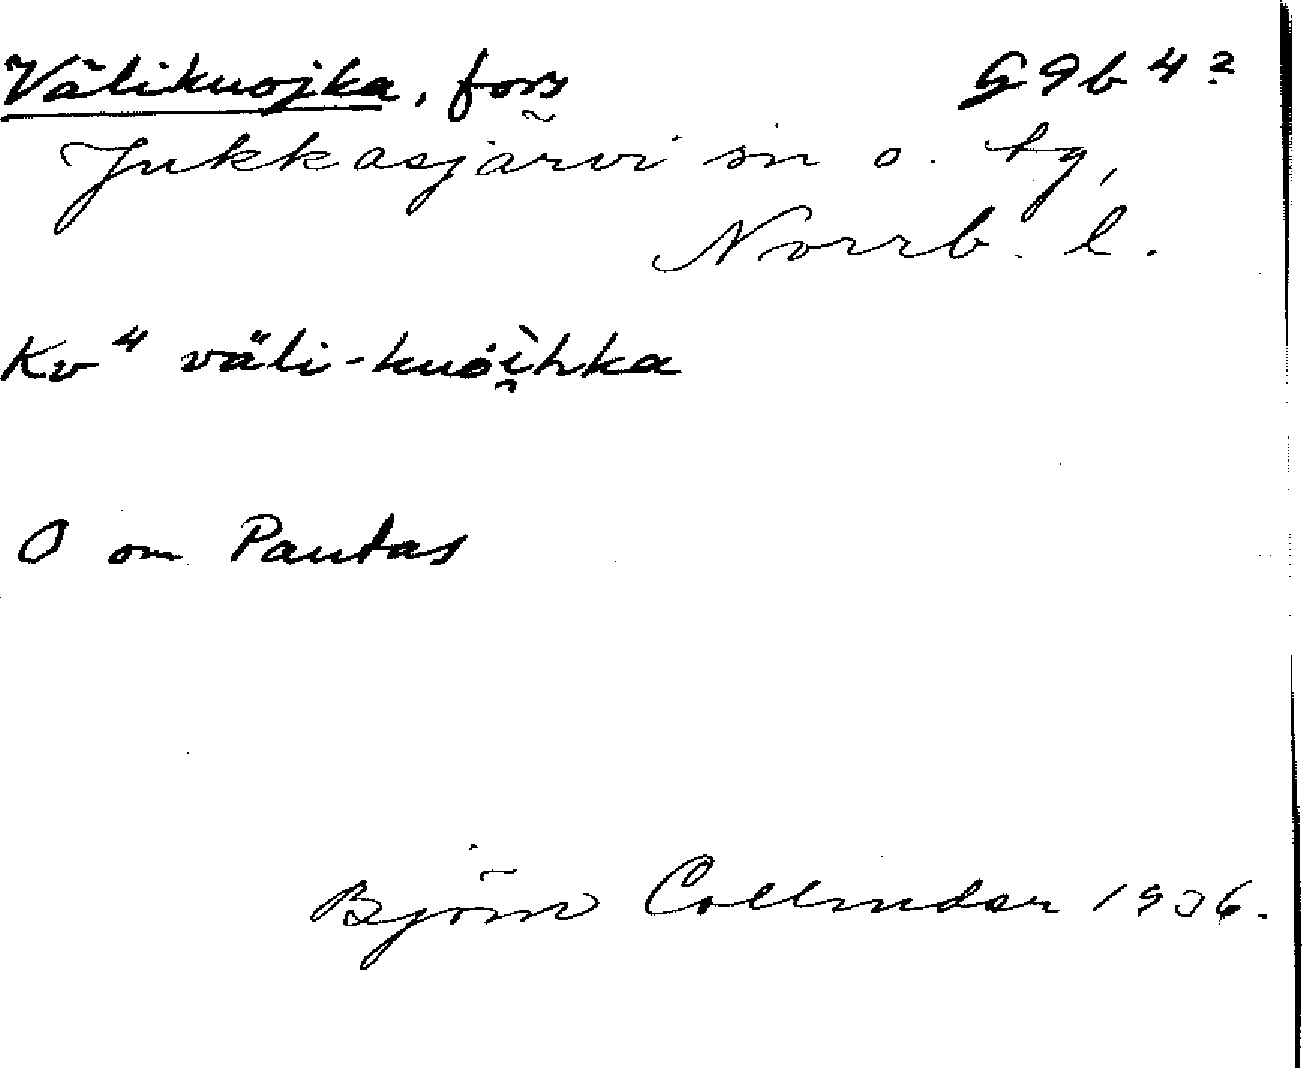 Välikuojka, fors G9b4?
Jukkasjärvi sn o. tg,
Norrb. l.
Kv⁴ väli-kuóì̯hka
O om Pautas
Björn Collinder 1936.